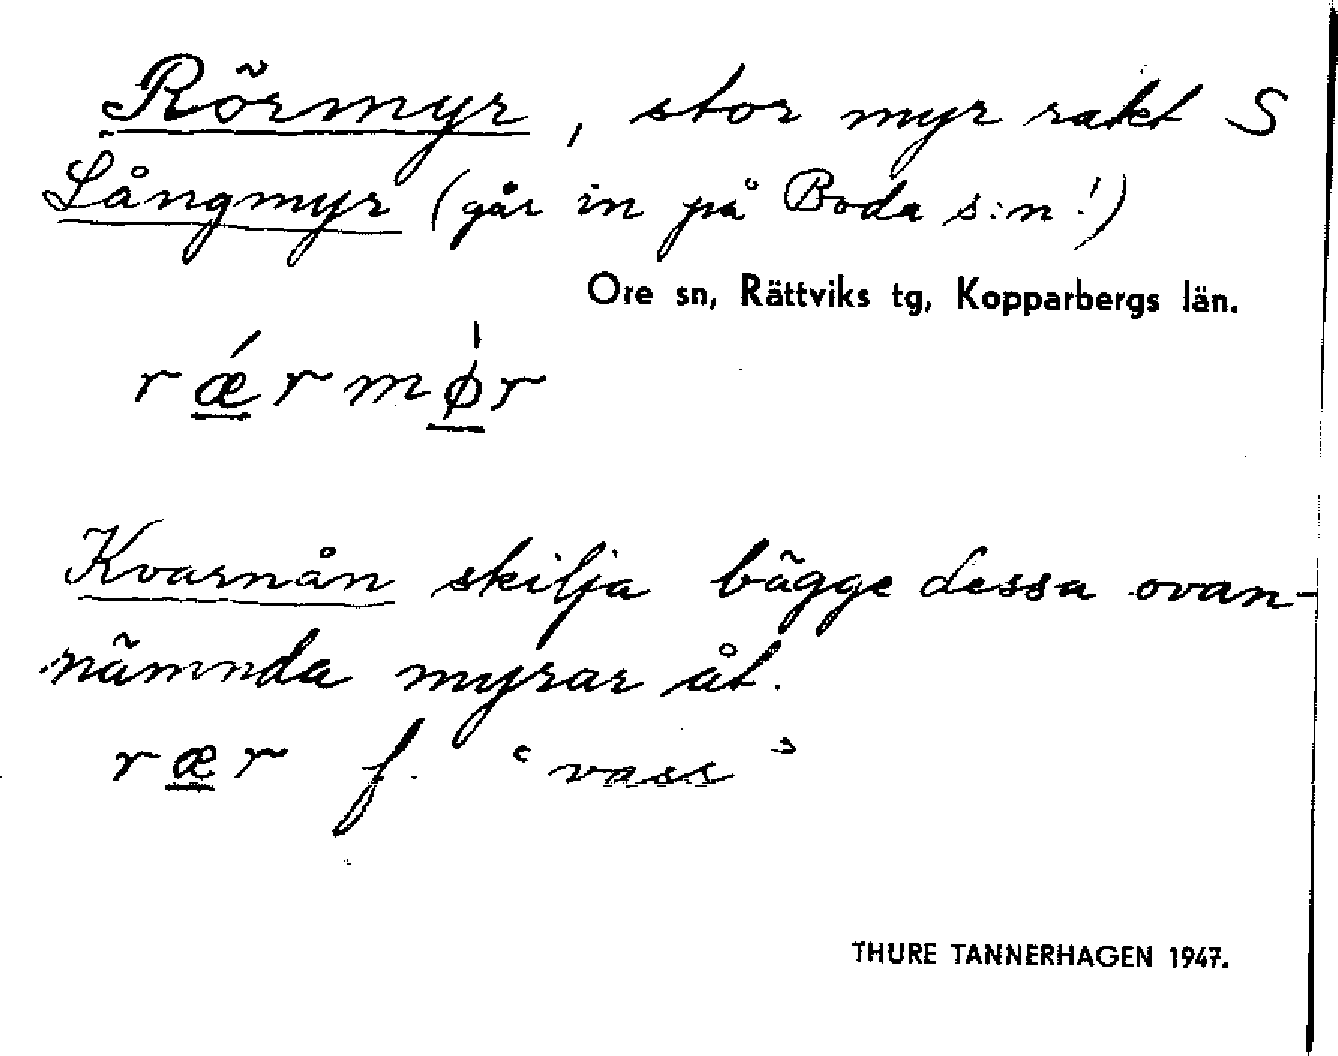 Rörmyr, stor myr rakt S
Långmyr (går in på Boda s:n!)
Ore sn, Rättviks tg, Kopparbergs län.
rǽrmǿr
Kvarnån skilja bägge dessa ovan-
nämnda myrar åt.
rær f. ‘vass’
THURE TANNERHAGEN 1947.